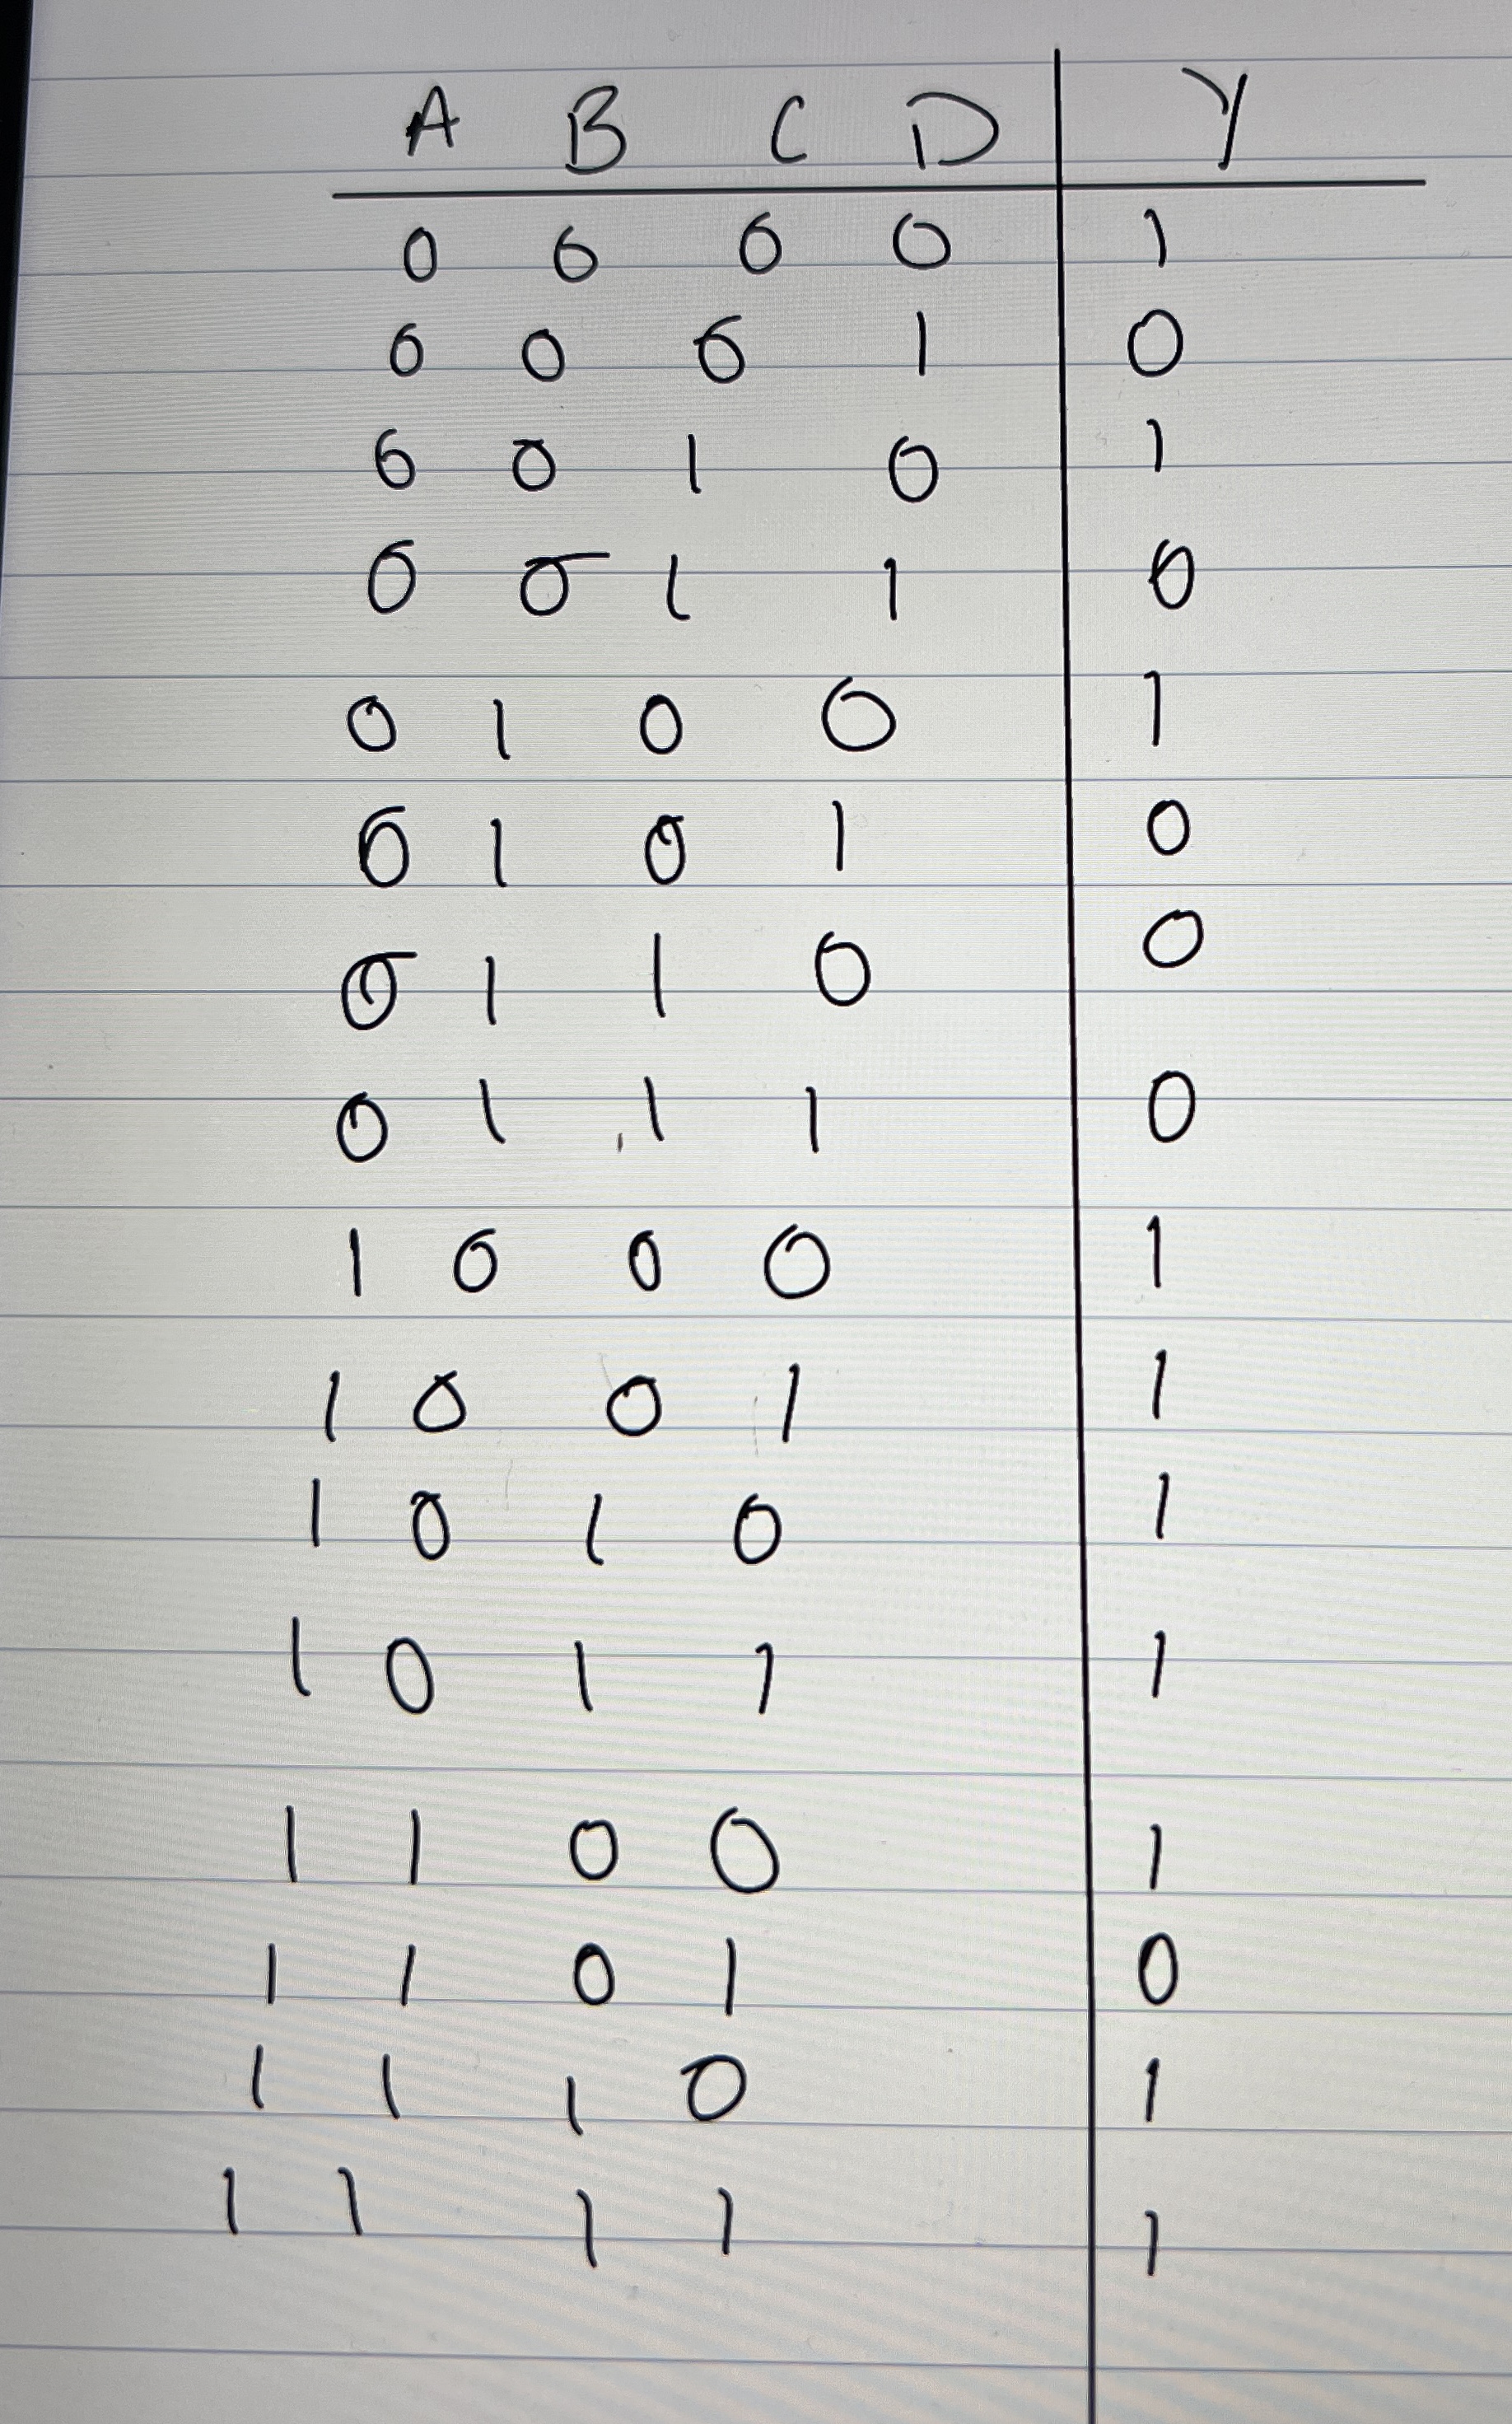 A B C D Y
0 0 0 0 1
0 0 0 1 0
0 0 1 0 1
0 0 1 1 0
0 1 0 0 1
0 1 0 1 0
0 1 1 0 0
0 1 1 1 0
1 0 0 0 1
1 0 0 1 1
1 0 1 0 1
1 0 1 1 1
1 1 0 0 1
1 1 0 1 0
1 1 1 0 1
1 1 1 1 1